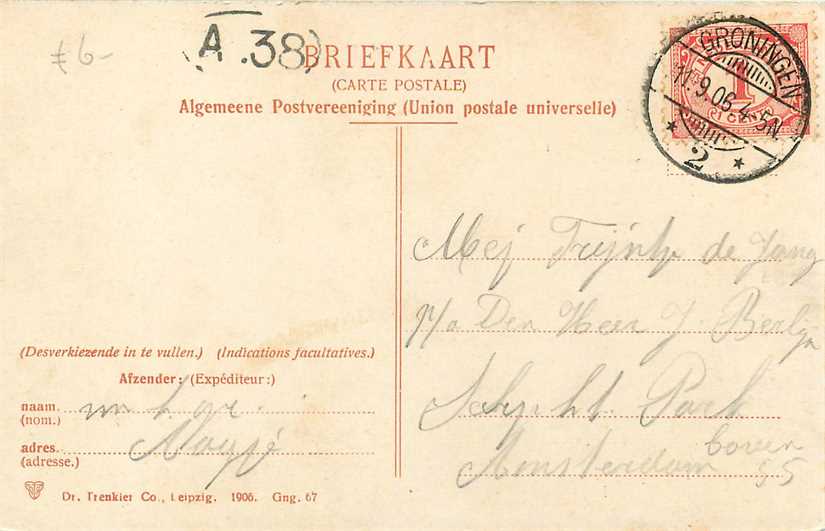 £ 6-
A.38
BRIEFKAART
(CARTE POSTALE)
Algemeene Postvereeniging (Union postale universelle)
GRONINGEN
11.9.06 4-5N
2
1
CENT
Mej Trijntje de Jong
p/a Den Heer J. Berlijn
Park
boven
Amsterdam 55
(Desverkiezende in te vullen.) (Indications facultatives.)
Afzender: (Expéditeur:)
naam.
(nom.)
adres.
(adresse.)
Dr. Trenkler Co., Leipzig. 1906. Gng. 67